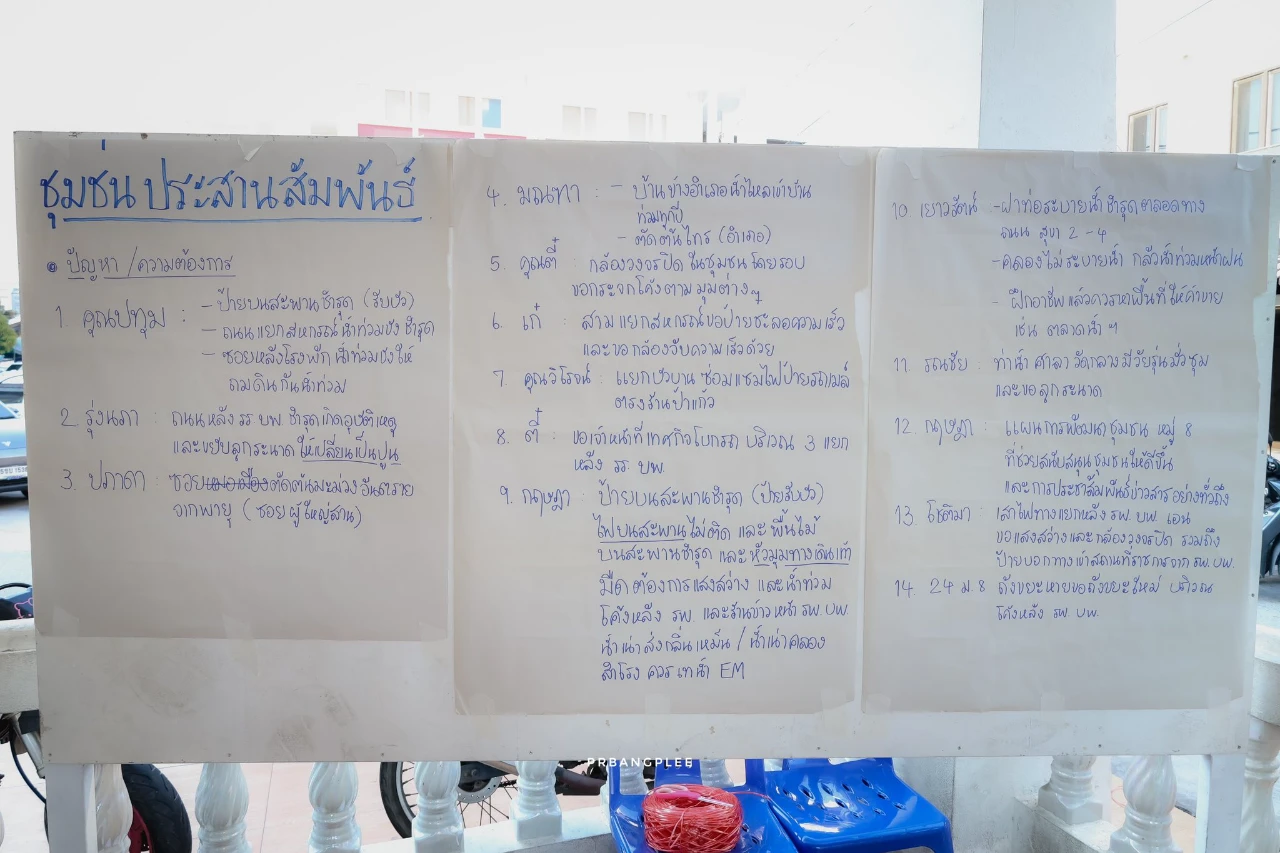 ชุมชนประสานสัมพันธ์
ปัญหา / ความต้องการ
1. คุณปทุม : - ป้ายบนสะพานชำรุด (รับบัว)
- ถนนแยกสหกรณ์น้ำท่วมขัง ชำรุด
- ซอยหลังโรงพัก น้ำท่วมขังให้
ถมดินกันน้ำท่วม
2. รุ่งนภา : ถนนหลัง รร บพ ชำรุดเกิดอุบัติเหตุ
และขยับลูกระนาดให้เปลี่ยนเป็นปูน
3. ปภาดา : ซอยหมอเมืองตัดต้นมะม่วงอันตราย
จากพายุ (ซอยผู้ใหญ่สาน)
4. มณฑา : - บ้านข้างอำเภอน้ำไหลเข้าบ้าน
ท่วมทุกปี
- ตัดต้นไทร (อำเภอ)
5. คุณตี๋ : กล้องวงจรปิดในชุมชนโดยรอบ
ขอกระจกโค้งตามมุมต่างๆ
6. เก๋ : สามแยกสหกรณ์ขอป้ายชะลอความเร็ว
และขอกล้องจับความเร็วด้วย
7. คุณวิโรจน์ : แยกบัวบานซ่อมแซมไฟป้ายรถเมล์
ตรงร้านป้าแก้ว
8. ตี๋ : ขอเจ้าหน้าที่เทศกิจโบกรถ บริเวณ 3 แยก
หลัง รร บพ.
9. กฤษฎา : ป้ายบนสะพานชำรุด (ป้ายรับบัว)
ไฟบนสะพานไม่ติด และ พื้นไม้
บนสะพานชำรุด และหัวมุมทางเดินเท้า
มืด ต้องการแสงสว่าง และน้ำท่วม
โค้งหลัง รพ. และร้านข้าวหน้า รพ. บพ.
น้ำเน่าส่งกลิ่นเหม็น / น้ำเน่าคลอง
สำโรง ควรเทน้ำ EM
10. เยาวรัตน์ - ฝาท่อระบายน้ำชำรุดตลอดทาง
ถนน สุขา 2 - 4
- คลองไม่ระบายน้ำ กลัวน้ำท่วมหน้าฝน
- ฝึกอาชีพแล้วควรหาพื้นที่ให้ค้าขาย
เช่น ตลาดน้ำ ฯ
11. รณชัย : ท่าน้ำ ศาลา วัดกลาง มีวัยรุ่นมั่วสุม
และขอลูกระนาด
12. กฤษฎา : แผนการพัฒนาชุมชน หมู่ 8
ที่ช่วยสนับสนุนชุมชนให้ดีขึ้น
และการประชาสัมพันธ์ข่าวสารอย่างทั่วถึง
13. โชติมา : เสาไฟทางแยกหลัง รพ. บพ. เอน
ขอแสงสว่างและกล้องวงจรปิด รวมถึง
ป้ายบอกทางเข้าสถานที่ราชการจาก รพ. บพ.
14. 24 ม. 8 ถังขยะหายขอถังขยะใหม่ บริเวณ
โค้งหลัง รพ บพ.
PRBANGPLEE